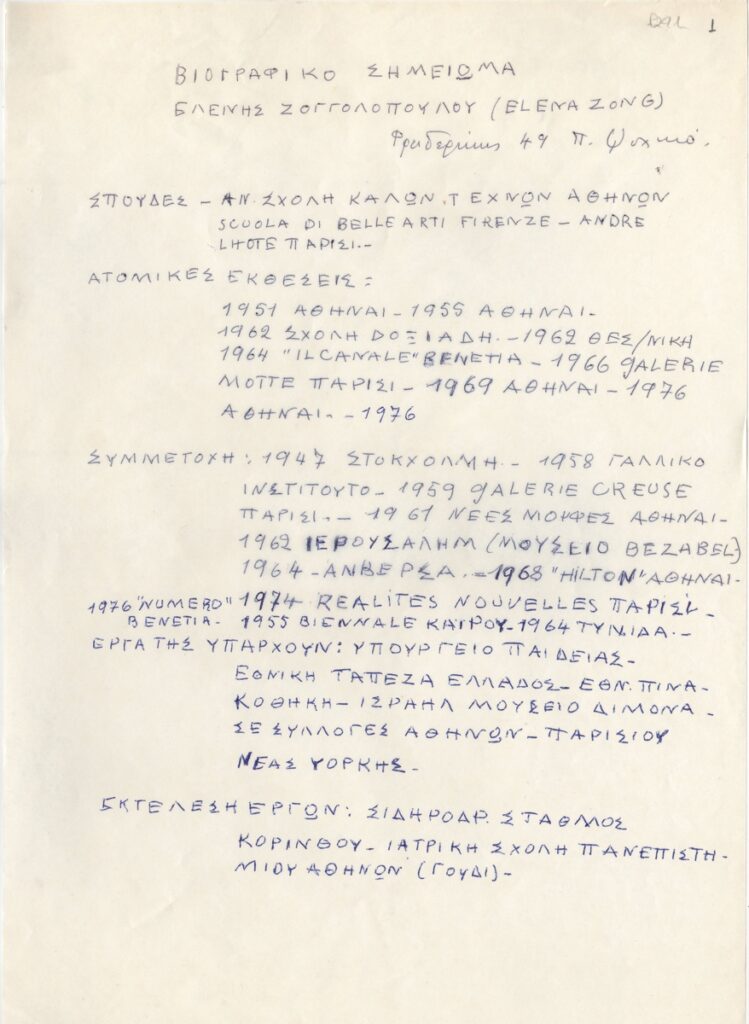 D92 1
ΒΙΟΓΡΑΦΙΚΟ ΣΗΜΕΙΩΜΑ
ΕΛΕΝΗΣ ΖΟΓΓΟΛΟΠΟΥΛΟΥ (ELENA ZONG)
Φρειδερίκης 49 Π. Ψυχικό.
ΣΠΟΥΔΕΣ – ΑΝ. ΣΧΟΛΗ ΚΑΛΩΝ ΤΕΧΝΩΝ ΑΘΗΝΩΝ
SCUOLA DI BELLE ARTI FIRENZE – ANDRE
LHOTE ΠΑΡΙΣΙ.–
ΑΤΟΜΙΚΕΣ ΕΚΘΕΣΕΙΣ :
1951 ΑΘΗΝΑΙ – 1955 ΑΘΗΝΑΙ –
1962 ΣΧΟΛΗ ΔΟΞΙΑΔΗ. – 1962 ΘΕΣ/ΝΙΚΗ
1964 "IL CANALE" ΒΕΝΕΤΙΑ – 1966 GALERIE
MOTTE ΠΑΡΙΣΙ – 1969 ΑΘΗΝΑΙ – 1976
ΑΘΗΝΑΙ. – 1976
ΣΥΜΜΕΤΟΧΗ : 1947 ΣΤΟΚΧΟΛΜΗ. – 1958 ΓΑΛΛΙΚΟ
ΙΝΣΤΙΤΟΥΤΟ – 1959 GALERIE CREUSE
ΠΑΡΙΣΙ. – 1961 ΝΕΕΣ ΜΟΡΦΕΣ ΑΘΗΝΑΙ –
1962 ΙΕΡΟΥΣΑΛΗΜ (ΜΟΥΣΕΙΟ BEZABEL)
1964 – ΑΝΒΕΡΣΑ. – 1968 "HILTON" ΑΘΗΝΑΙ –
1976 "NUMERO" 1974 REALITES NOUVELLES ΠΑΡΙΣΙ –
ΒΕΝΕΤΙΑ – 1955 BIENNALE ΚΑΙΡΟΥ – 1964 ΤΥΝΙΔΑ. –
ΕΡΓΑ ΤΗΣ ΥΠΑΡΧΟΥΝ : ΥΠΟΥΡΓΕΙΟ ΠΑΙΔΕΙΑΣ –
ΕΘΝΙΚΗ ΤΑΠΕΖΑ ΕΛΛΑΔΟΣ – ΕΘΝ. ΠΙΝΑ –
ΚΟΘΗΚΗ – ΙΣΡΑΗΛ ΜΟΥΣΕΙΟ ΔΙΜΟΝΑ –
ΣΕ ΣΥΛΛΟΓΕΣ ΑΘΗΝΩΝ – ΠΑΡΙΣΙΟΥ
ΝΕΑΣ ΥΟΡΚΗΣ –
ΕΚΤΕΛΕΣΗ ΕΡΓΩΝ : ΣΙΔΗΡΟΔΡ. ΣΤΑΘΜΟΣ
ΚΟΡΙΝΘΟΥ – ΙΑΤΡΙΚΗ ΣΧΟΛΗ ΠΑΝΕΠΙΣΤΗ –
ΜΙΟΥ ΑΘΗΝΩΝ (ΓΟΥΔΙ) –